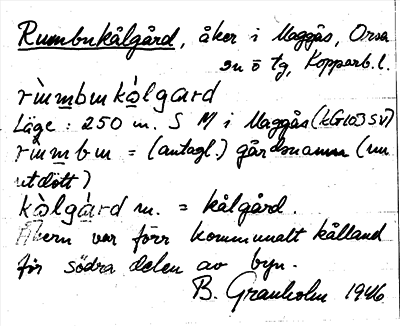 Rumbukålgård, åker i Maggås, Orsa
sn ö tg, Kopparb. l.
rùmbukɑ̀lgard
Läge: 250 m. S M i Maggås (kG103 SV)
rùmbu = (antagl.) gårdsnamn (nu
utdött)
kɑ̀lgɑrd m. = kålgård.
Åkern var förr kommunalt kålland
för södra delen av byn.
B. Granholm 1946